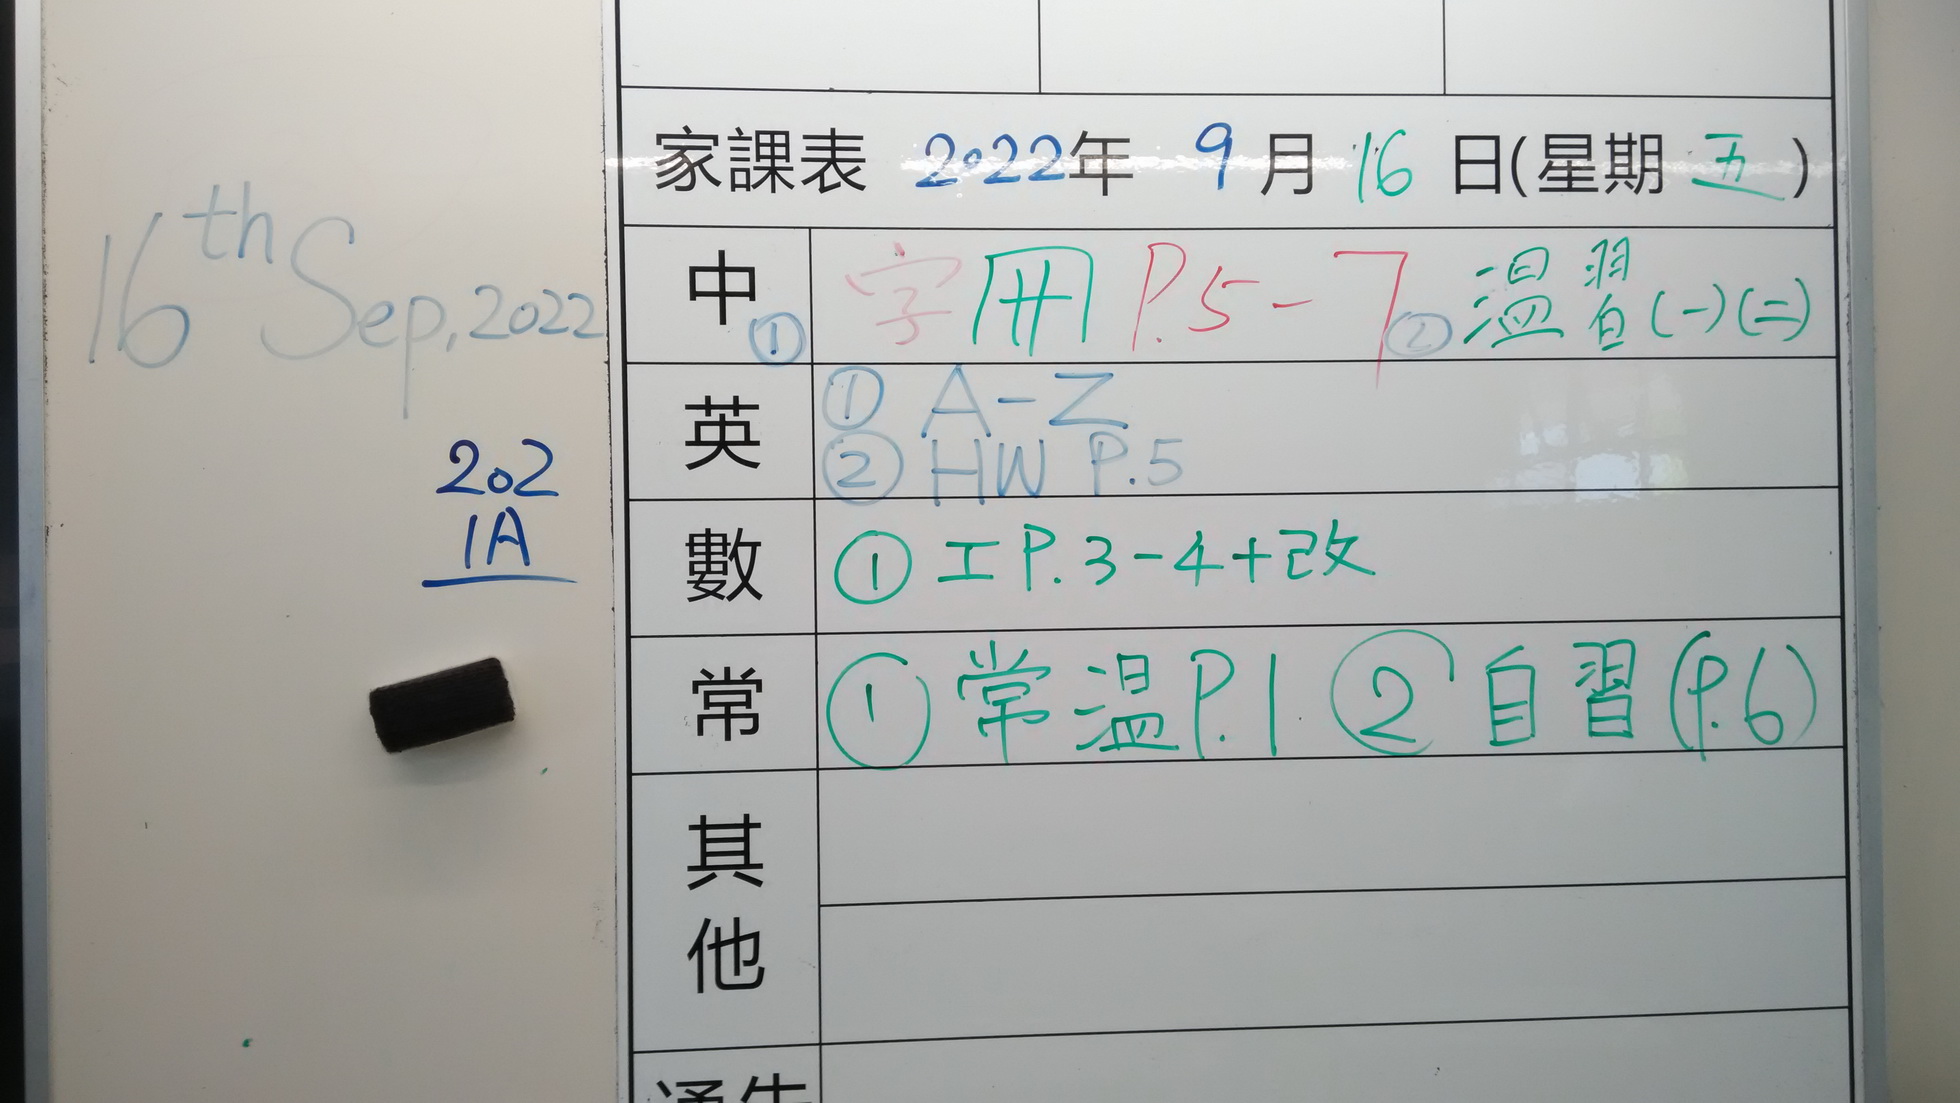 16th Sep, 2022
202
1A
家課表 2022年 9月 16日(星期 五)
中 ① 字冊 P.5-7 ② 温習(一)(二)
英 ① A-Z
② HW P.5
數 ① 工P.3-4+改
常 ① 常温P.1 ② 自習(P.6)
其他
通告